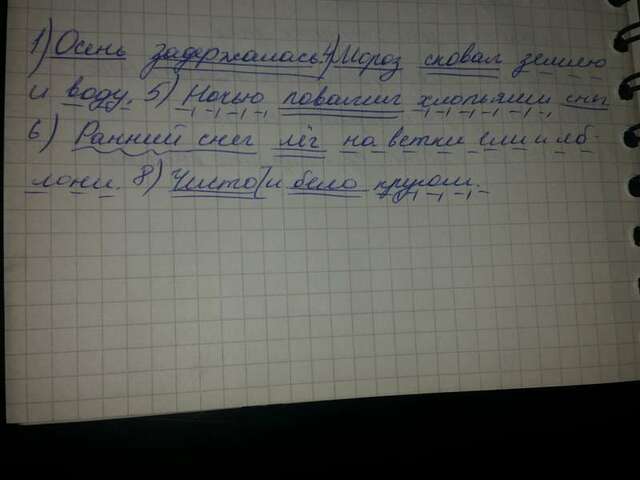 1) Осень задержалась. 4) Мороз сковал землю
и воду. 5) Ночью повалил хлопьями снег
6) Ранний снег лёг на ветки ели и яб-
лони. 8) Чисто и бело кругом.